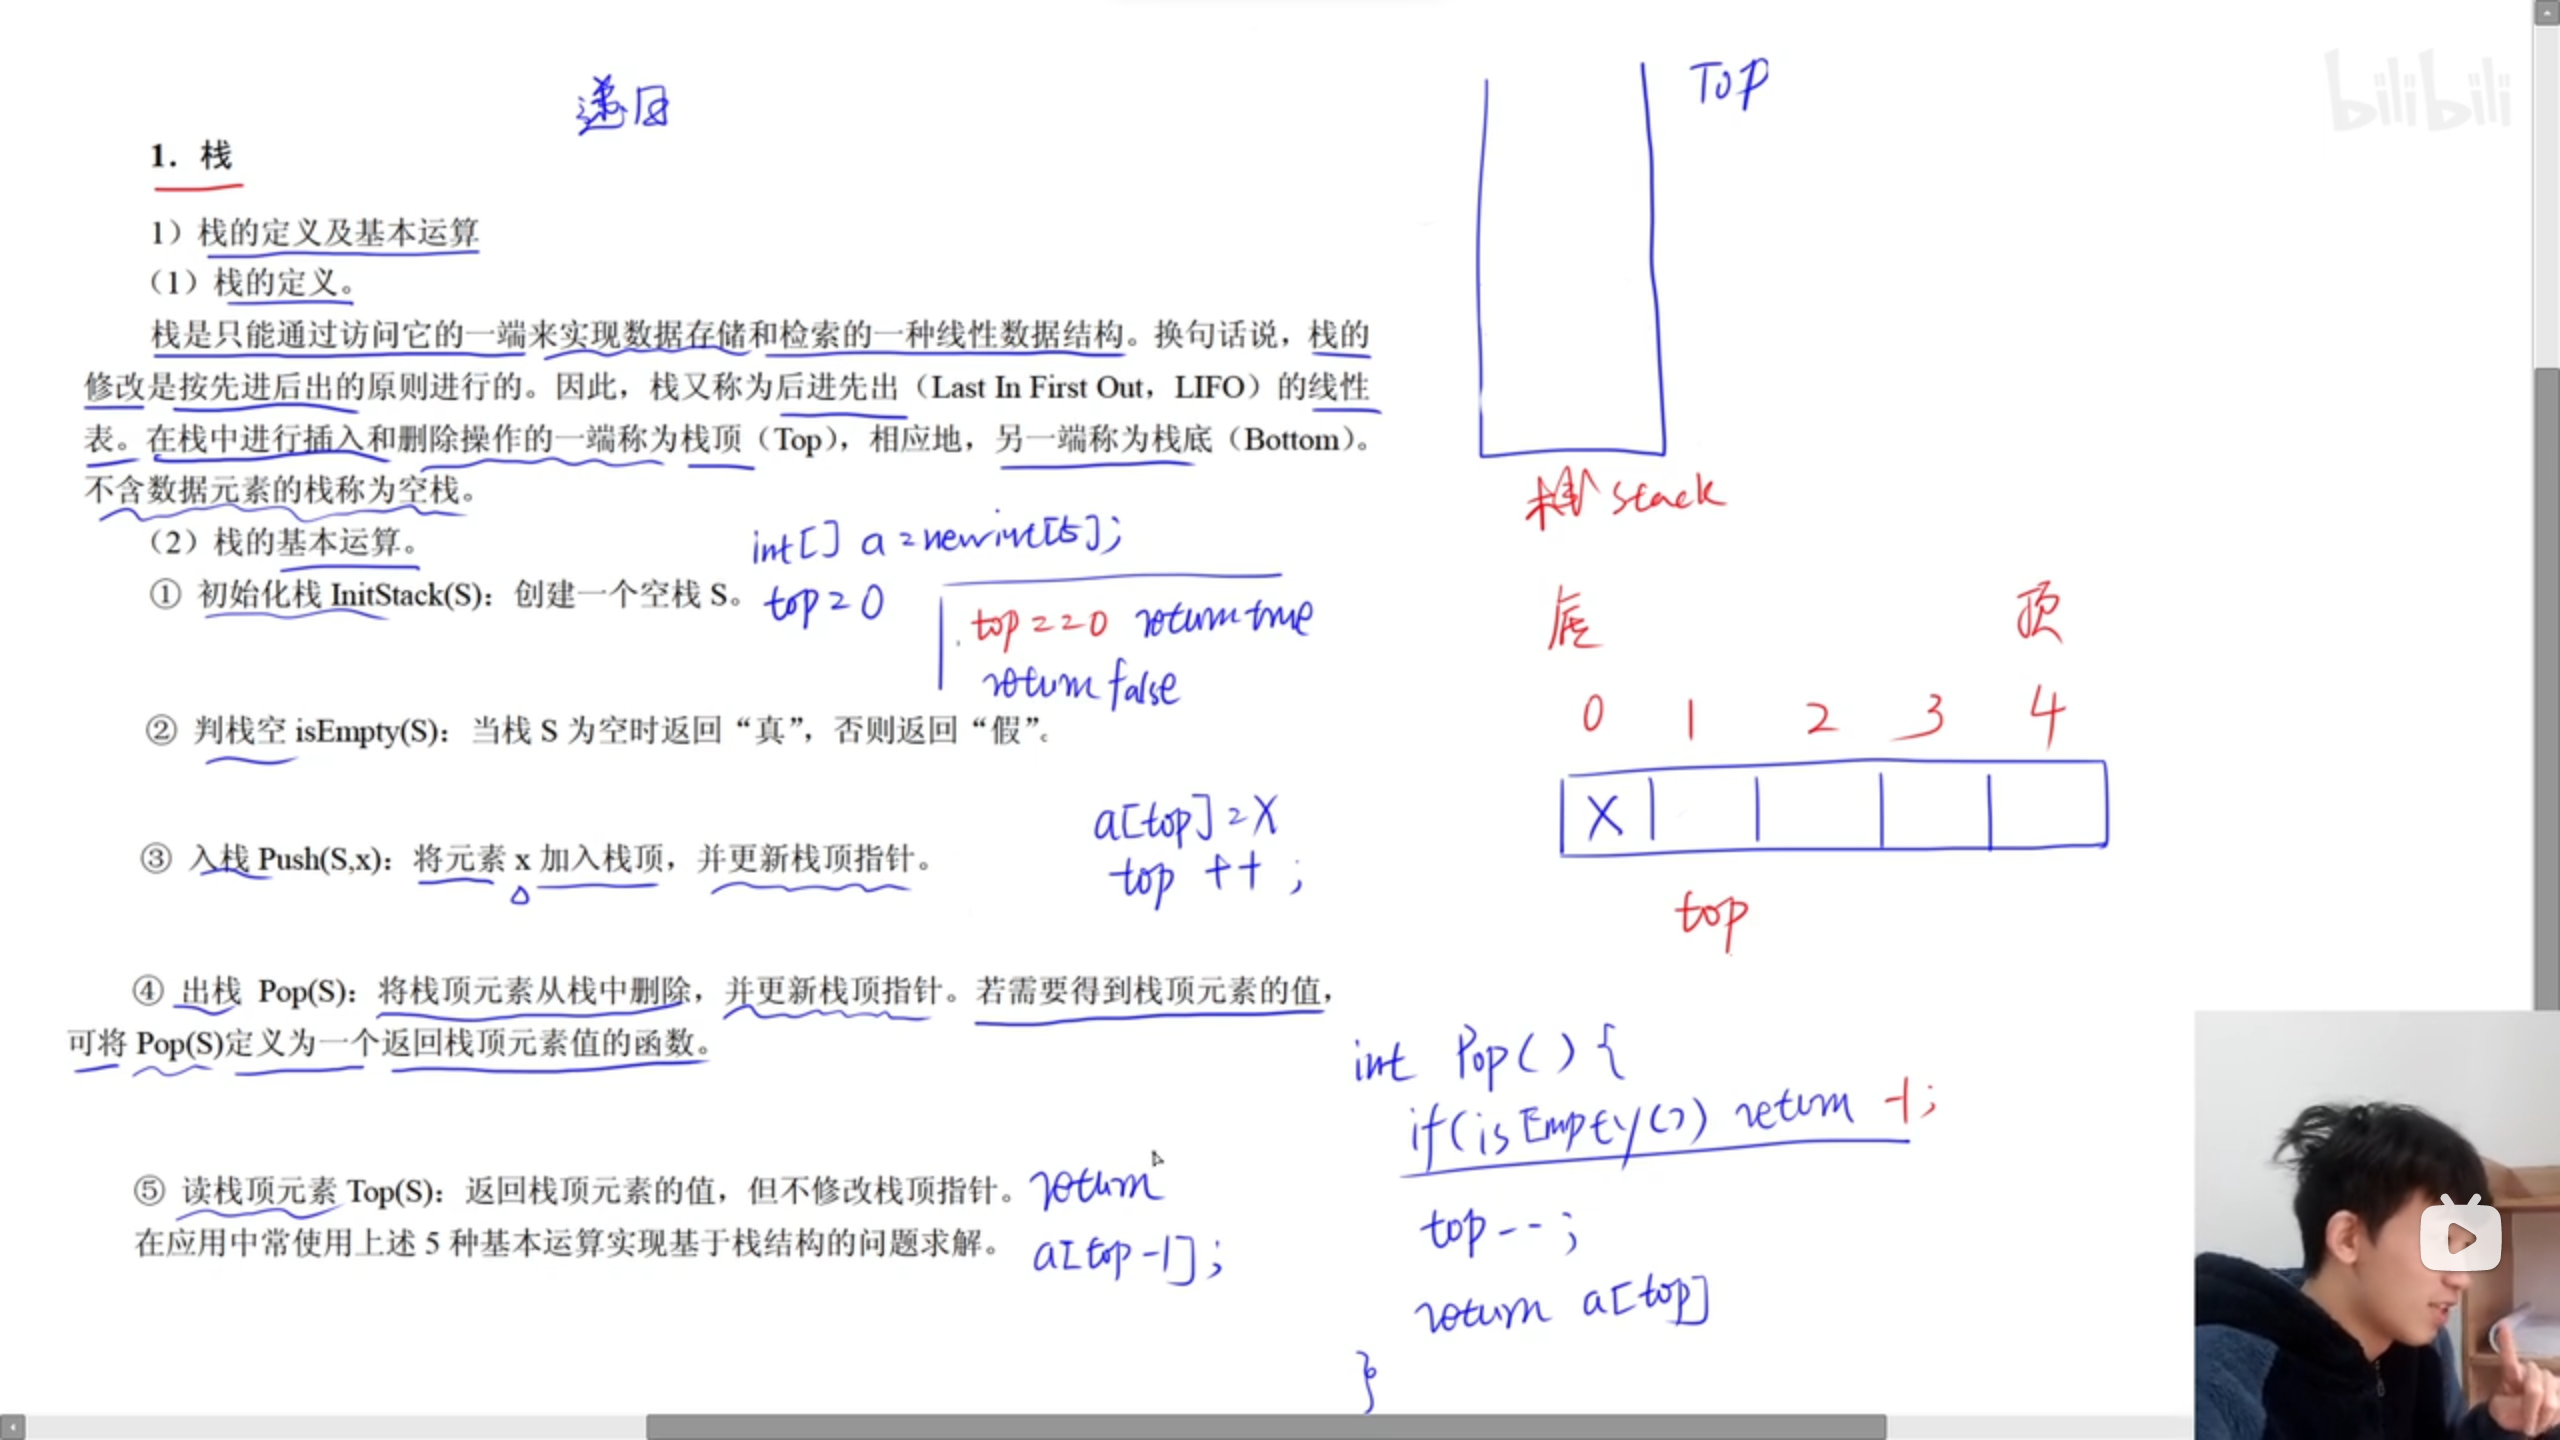 bilibili
递归
TOP
1. 栈
1）栈的定义及基本运算
（1）栈的定义。
栈是只能通过访问它的一端来实现数据存储和检索的一种线性数据结构。换句话说，栈的
修改是按先进后出的原则进行的。因此，栈又称为后进先出（Last In First Out，LIFO）的线性
表。在栈中进行插入和删除操作的一端称为栈顶（Top），相应地，另一端称为栈底（Bottom）。
不含数据元素的栈称为空栈。
stack
（2）栈的基本运算。
int[] a = new int[5];
① 初始化栈 InitStack(S)：创建一个空栈 S。
top = 0
top == 0 return true
return false
底 顶
0 1 2 3 4
② 判栈空 isEmpty(S)：当栈 S 为空时返回“真”，否则返回“假”。
X
a[top] = X
top ++ ;
③ 入栈 Push(S,x)：将元素 x 加入栈顶，并更新栈顶指针。
top
④ 出栈 Pop(S)：将栈顶元素从栈中删除，并更新栈顶指针。若需要得到栈顶元素的值，
可将 Pop(S)定义为一个返回栈顶元素值的函数。
int Pop() {
if(isEmpty()) return -1;
top--;
return a[top]
}
⑤ 读栈顶元素 Top(S)：返回栈顶元素的值，但不修改栈顶指针。
return
a[top-1];
在应用中常使用上述 5 种基本运算实现基于栈结构的问题求解。